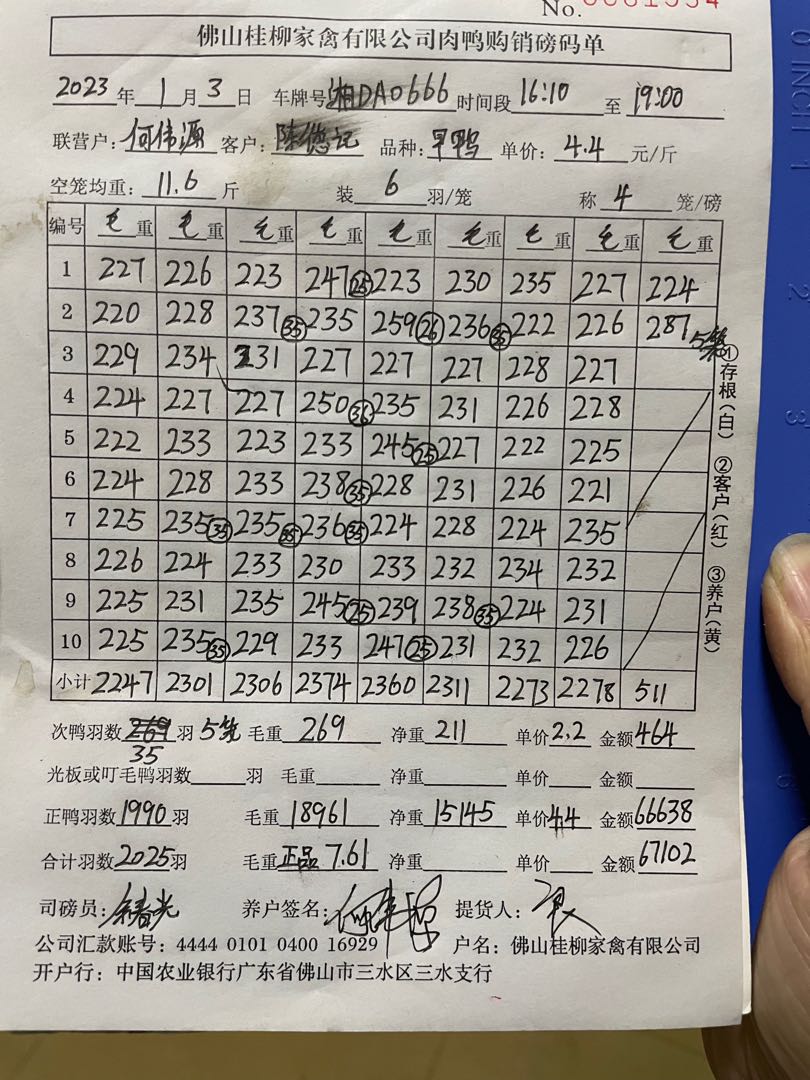 No. 0061554
佛山桂柳家禽有限公司肉鸭购销磅码单
2023 年 1 月 3 日 车牌号 湘DA0666 时间段 16:10 至 19:00
联营户: 何伟源 客户: 陈德记 品种: 早鸭 单价: 4.4 元/斤
空笼均重: 11.6 斤 装 6 羽/笼 称 4 笼/磅
编号 毛重 毛重 毛重 毛重 毛重 毛重 毛重 毛重 毛重
1 227 226 223 247 (25) 223 230 235 227 224
2 220 228 237 (35) 235 259 (26) 236 (35) 222 226 287 5笼
3 229 234 231 227 227 227 228 227
4 224 227 227 250 (36) 235 231 226 228
5 222 233 223 233 245 (25) 227 222 225
6 224 228 233 238 (35) 228 231 226 221
7 225 235 (35) 235 (35) 236 (35) 224 228 224 235
8 226 224 233 230 233 232 234 232
9 225 231 235 245 (25) 239 238 (35) 224 231
10 225 235 (35) 229 233 247 (25) 231 232 226
小计 2247 2301 2306 2374 2360 2311 2273 2278 511
①存根(白) ②客户(红) ③养户(黄)
次鸭羽数 269 羽 5笼 毛重 269 净重 211 单价 2.2 金额 464
35
光板或叮毛鸭羽数 羽 毛重 净重 单价 金额
正鸭羽数 1990 羽 毛重 18961 净重 15145 单价 4.4 金额 66638
合计羽数 2025 羽 毛重 正品 7.61 净重 单价 金额 67102
司磅员: 养户签名: 提货人:
公司汇款账号: 4444 0101 0400 16929 户名: 佛山桂柳家禽有限公司
开户行: 中国农业银行广东省佛山市三水区三水支行